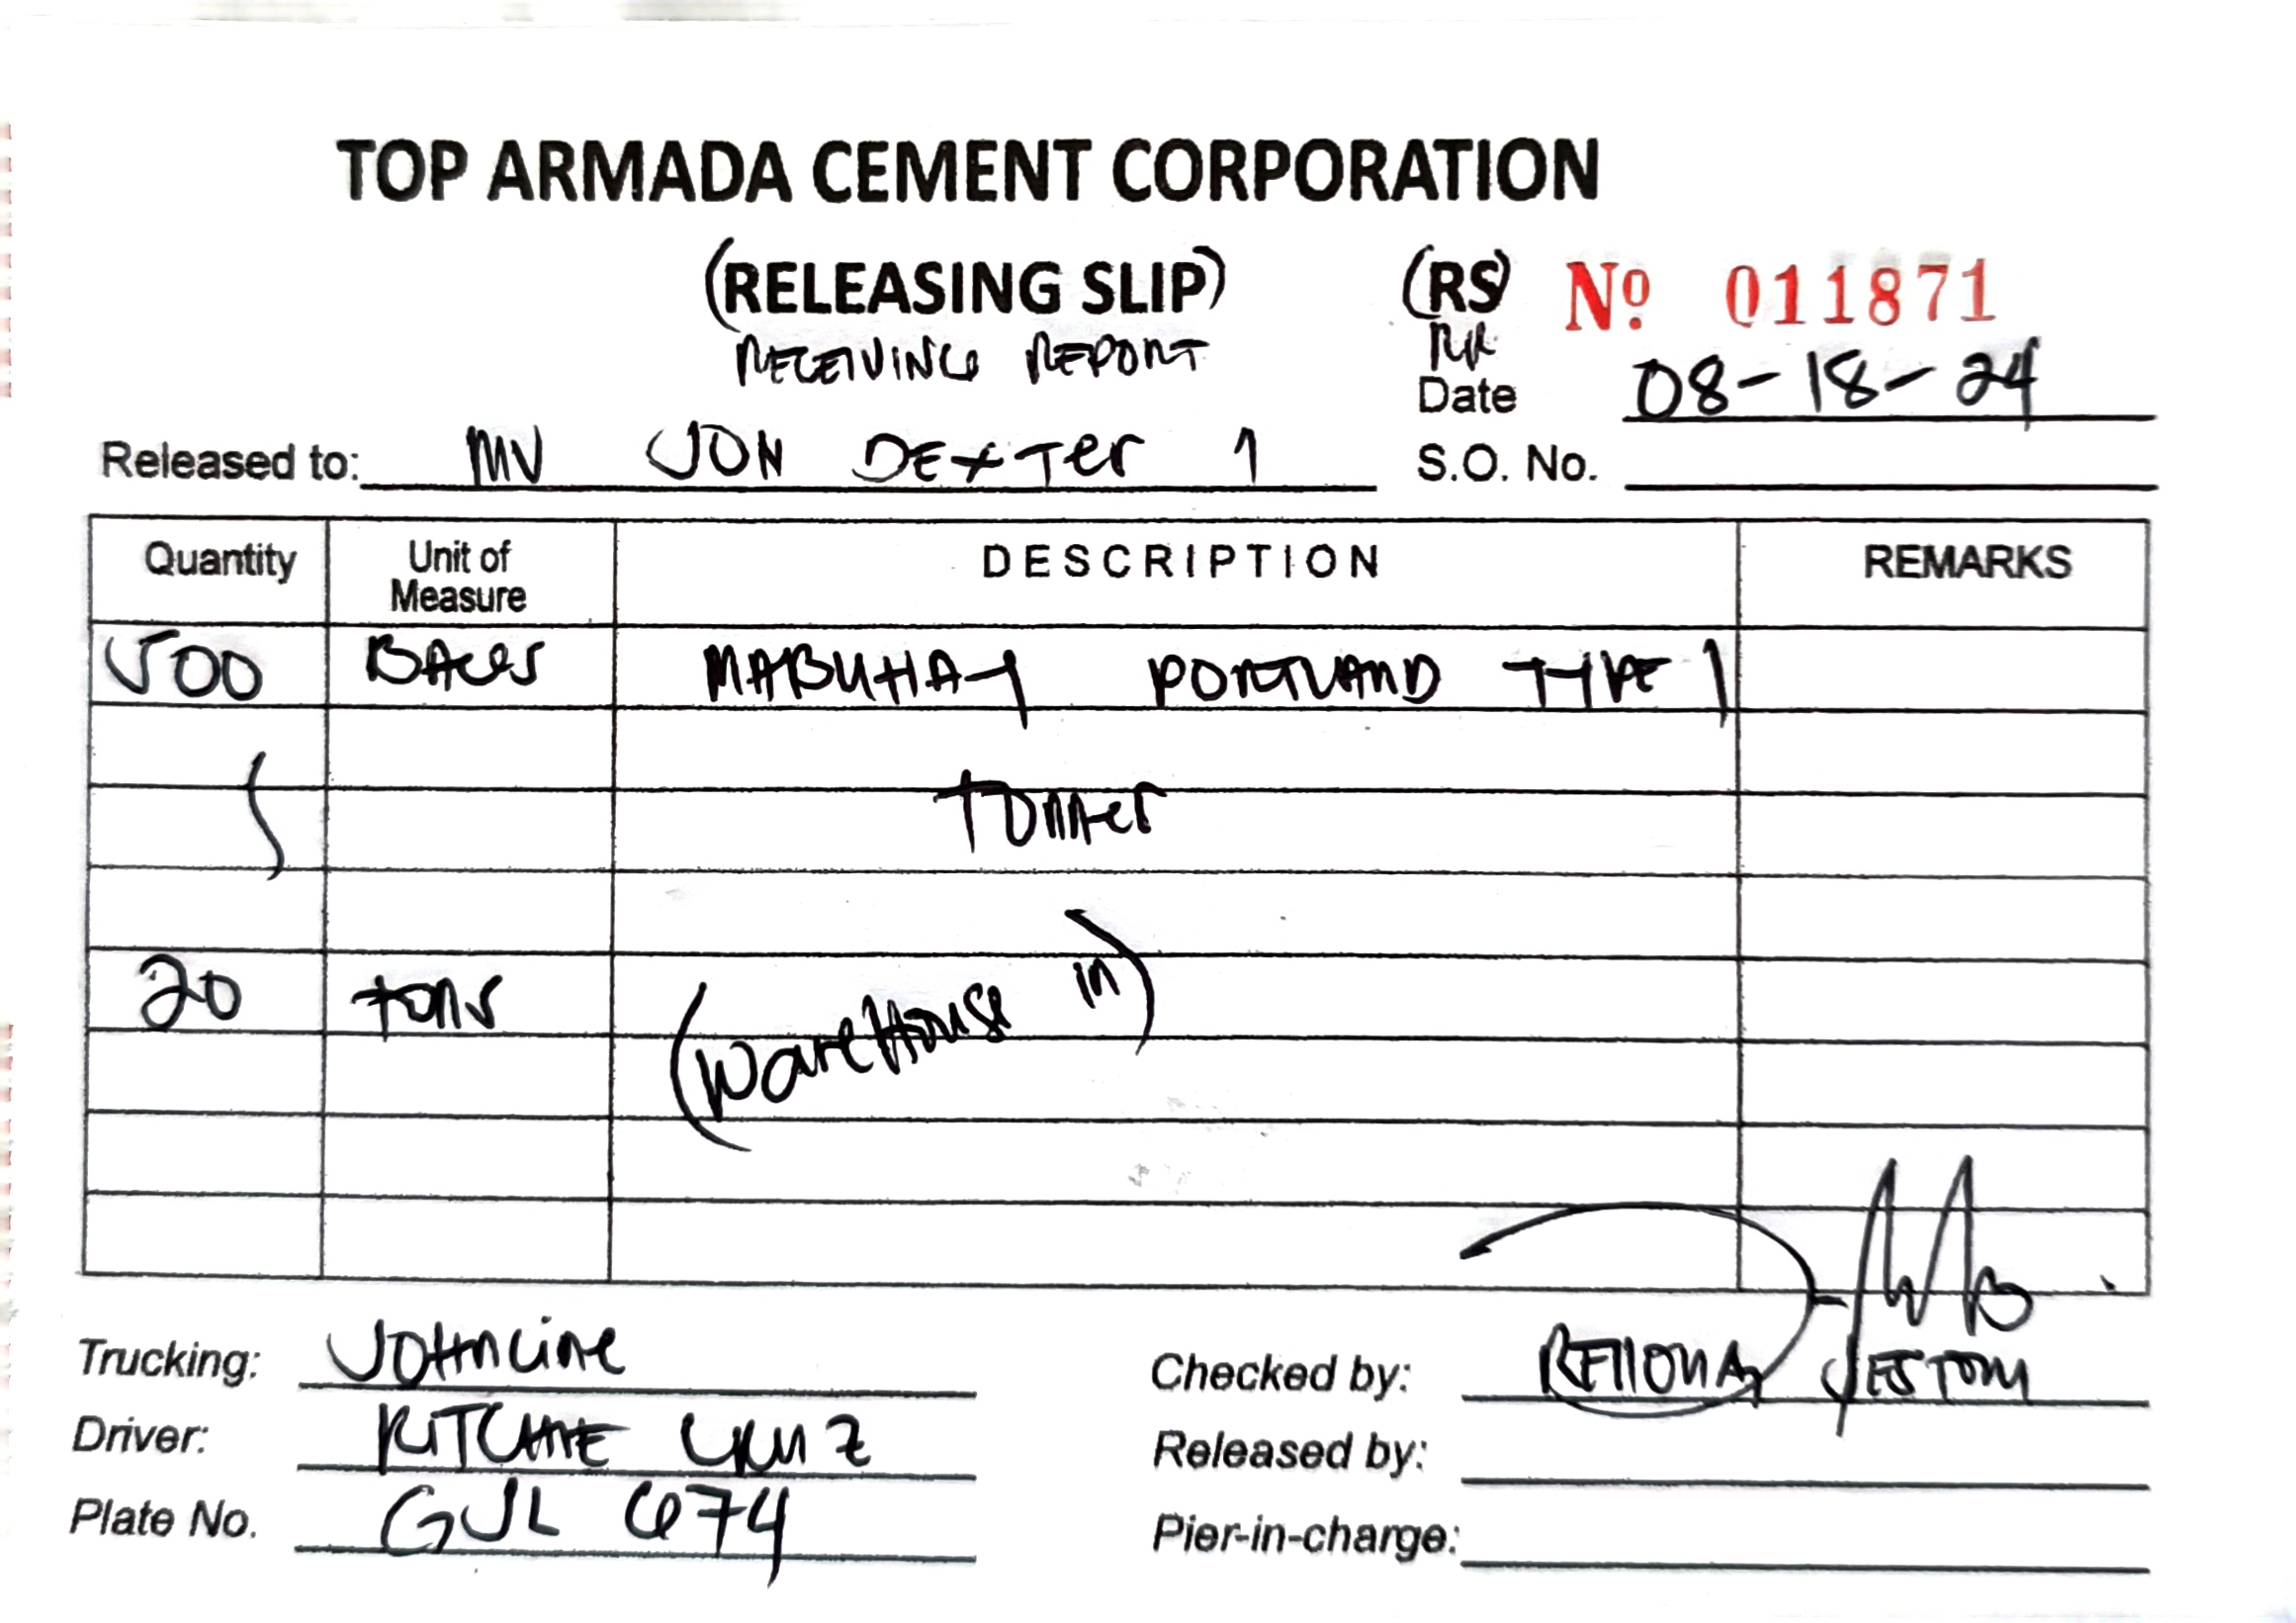 TOP ARMADA CEMENT CORPORATION
(RELEASING SLIP) (RS) Nº 011871
RECEIVING REPORT RR
Date 08-18-24
Released to: MV JON DEXTER 1 S.O. No.
Quantity Unit of Measure DESCRIPTION REMARKS
500 BAGS MABUHAY PORTLAND TYPE 1
TONNER
20 TONS (WareHouse in)
Trucking: JOHNLINE Checked by: JESTONI
Driver: RITCHIE CRUZ Released by:
Plate No. GJL 674 Pier-in-charge: